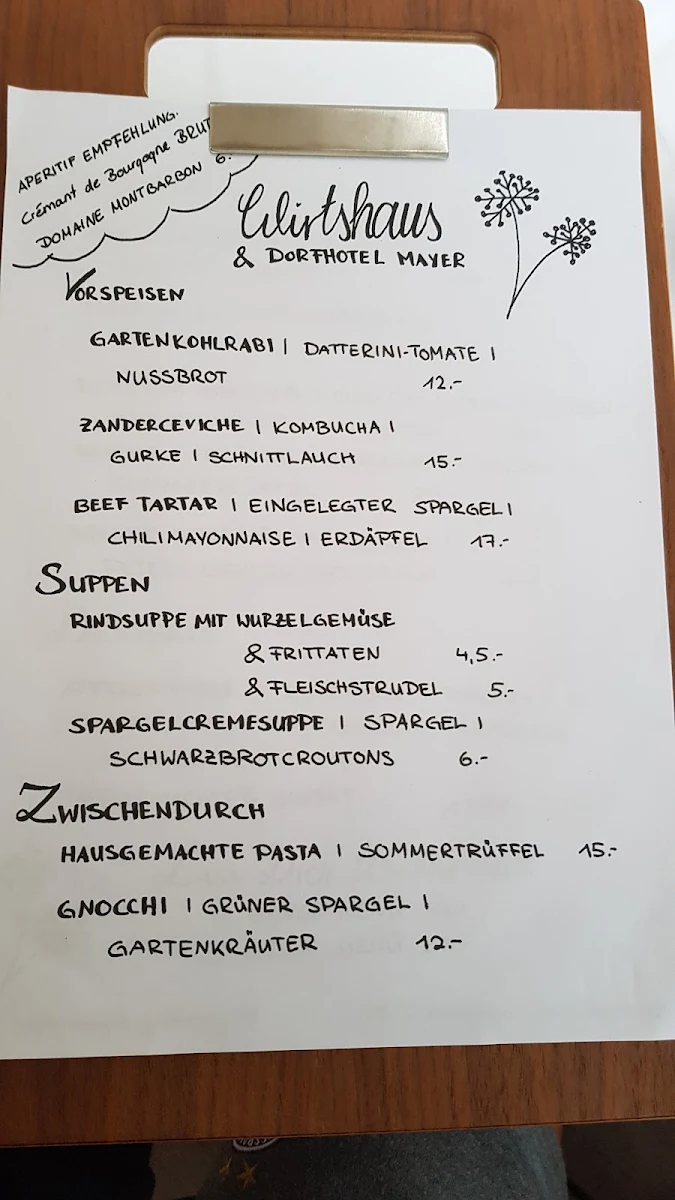 APERITIF EMPFEHLUNG:
Crémant de Bourgogne BRUT
DOMAINE MONTBARBON 6.
Wirtshaus
& DORFHOTEL MAYER
VORSPEISEN
GARTENKOHLRABI | DATTERINI-TOMATE |
NUSSBROT 12.-
ZANDERCEVICHE | KOMBUCHA |
GURKE | SCHNITTLAUCH 15.-
BEEF TARTAR | EINGELEGTER SPARGEL |
CHILIMAYONNAISE | ERDÄPFEL 17.-
SUPPEN
RINDSUPPE MIT WURZELGEMÜSE
& FRITTATEN 4,5.-
& FLEISCHSTRUDEL 5.-
SPARGELCREMESUPPE | SPARGEL |
SCHWARZBROTCROUTONS 6.-
ZWISCHENDURCH
HAUSGEMACHTE PASTA | SOMMERTRÜFFEL 15.-
GNOCCHI | GRÜNER SPARGEL |
GARTENKRÄUTER 12.-